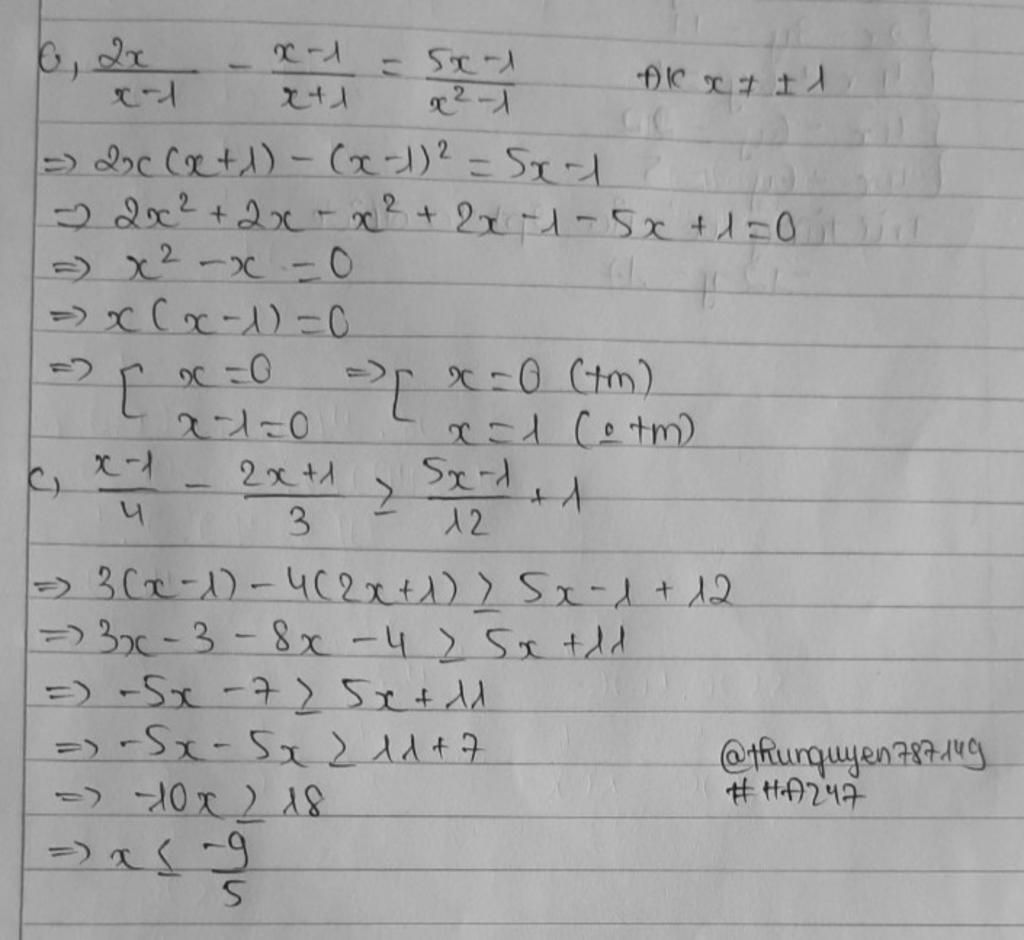 b, 2x/(x-1) - (x-1)/(x+1) = (5x-1)/(x²-1) ĐK x ≠ ±1
=> 2x(x+1) - (x-1)² = 5x-1
=> 2x² + 2x - x² + 2x - 1 - 5x + 1 = 0
=> x² - x = 0
=> x(x-1) = 0
=> [ x = 0 => [ x = 0 (tm)
x-1 = 0 x = 1 (o tm)
c, (x-1)/4 - (2x+1)/3 ≥ (5x-1)/12 + 1
=> 3(x-1) - 4(2x+1) ≥ 5x - 1 + 12
=> 3x - 3 - 8x - 4 ≥ 5x + 11
=> -5x - 7 ≥ 5x + 11
=> -5x - 5x ≥ 11 + 7
=> -10x ≥ 18
=> x ≤ -9/5
@thunguyen787149
#HA247